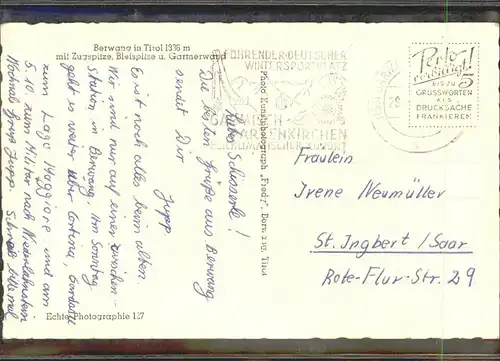 Berwang in Tirol 1336 m
mit Zugspitze, Bleispitze u. Gartnerwand
FÜHRENDER DEUTSCHER
WINTERSPORTPLATZ
GARMISCH
PARTENKIRCHEN
HEILKLIMATISCHER KURORT
Porto
verbilligt!
5
BIS ZU
GRUSSWORTEN
ALS
DRUCKSACHE
FRANKIEREN
Liebes
Die besten Grüße aus Berwang
sendet Dir
Jupp
Es ist noch alles beim alten.
Wir sind nur auf einer Zwischen-
station in Berwang. Am Sonntag
geht es weiter über Cortina, Gardasee
zum Lago Maggiore und am
5.10. zum Militär nach Niederlahnstein
Nochmals Gruß Jupp Schreib mal
Photo Kunstphotograph „Fredy“ Berwang, Tirol
Fräulein
Irene Neumüller
St. Ingbert / Saar
Rote-Flur-Str. 29
Echte Photographie 127